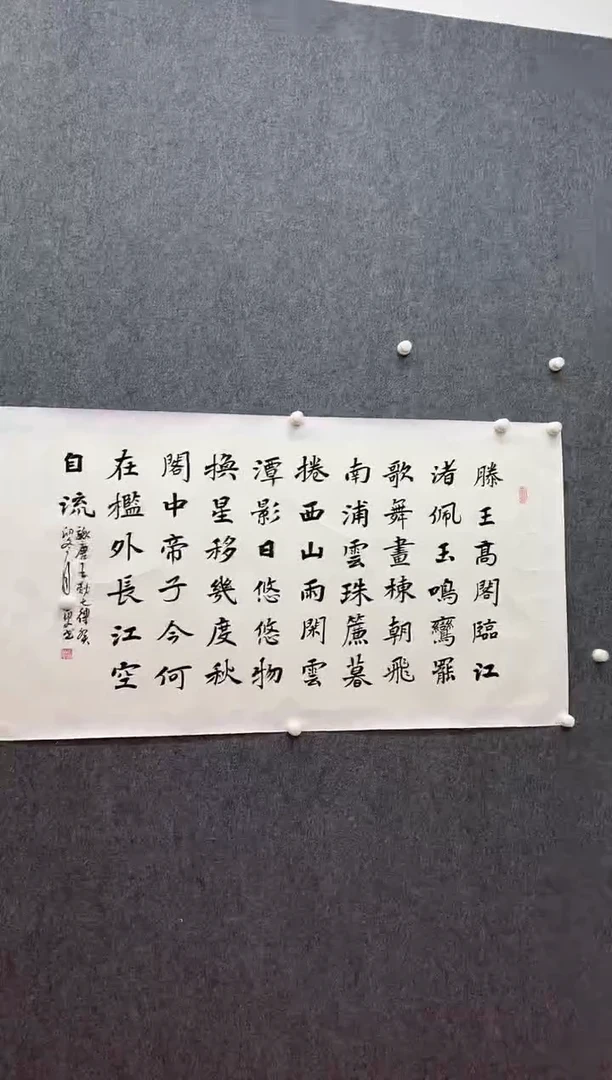 滕王高閣臨江
渚佩玉鳴鸞罷
歌舞畫棟朝飛
南浦雲珠簾暮
捲西山雨閑雲
潭影日悠悠物
換星移幾度秋
閣中帝子今何
在檻外長江空
自流
唐王勃之癸
卯冬月